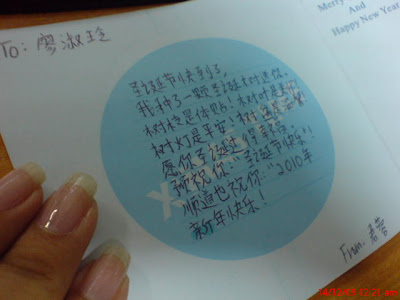 To: 廖淑玲
Merry
And
Happy New Year
圣诞节快到了,
我种了一颗圣诞树送你。
树枝是体贴! 树叶是
树灯是平安! 树
愿你圣诞过得
预祝你:"圣诞节快乐"!
顺道也祝你:"2010年
新年快乐!
From: